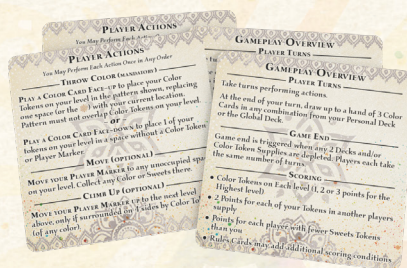 PLAYER ACTIONS
You May Perform Each Action
PLAYER ACTIONS
You May Perform Each Action Once in Any Order
THROW COLOR (MANDATORY)
PLAY A COLOR CARD FACE-UP to place your Color
Tokens on your level in the pattern shown, replacing
one space for the with your current location.
Pattern must not overlap Color Tokens on your level.
or
PLAY A COLOR CARD FACE-DOWN to place 1 of your
tokens on your level in a space without a Color Token
or Player Marker.
MOVE (OPTIONAL)
MOVE YOUR PLAYER MARKER to any unoccupied space
on your level. Collect any Color or Sweets there.
CLIMB UP (OPTIONAL)
MOVE YOUR PLAYER MARKER up to the next level
above, only if surrounded on 3 sides by Color To
(of any color).
GAMEPLAY OVERVIEW
PLAYER TURNS
GAMEPLAY OVERVIEW
PLAYER T URNS
Take turns performing actions.
At the end of your turn, draw up to a hand of 3 Color
Cards in any combination from your Personal Deck
or the Global Deck.
GAME END
Game end is triggered when any 2 Decks and/or
Color Token Supplies are depleted. Players each take
the same number of turns.
SCORING
• Color Tokens on Each level (1, 2 or 3 points for the
Highest level)
• 2 Points for each of your Tokens in another players
supply
• Points for each player with fewer Sweets Tokens
than you
• Rules Cards may add additional scoring conditions